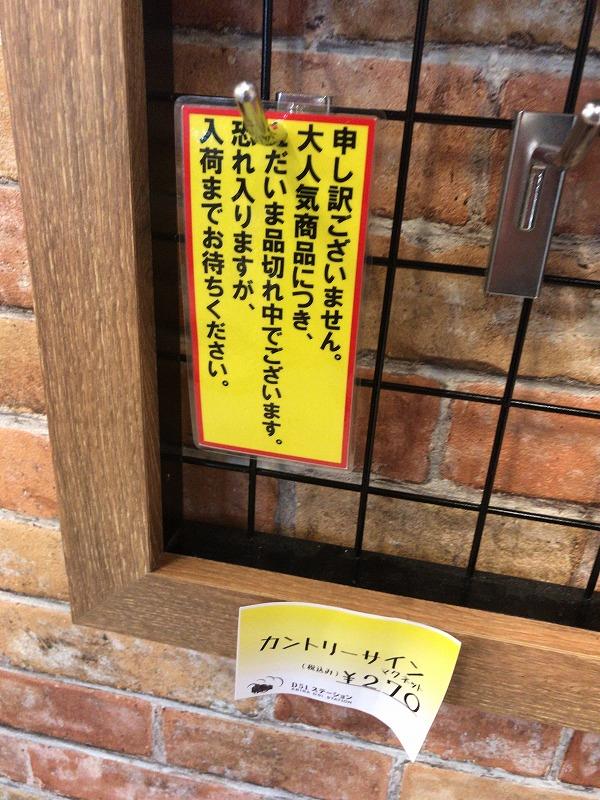 申し訳ございません。
大人気商品につき、
ただいま品切れ中でございます。
恐れ入りますが、
入荷までお待ちください。
カントリーサイン
マグネット
(税込み) ¥210
D51 ステーション